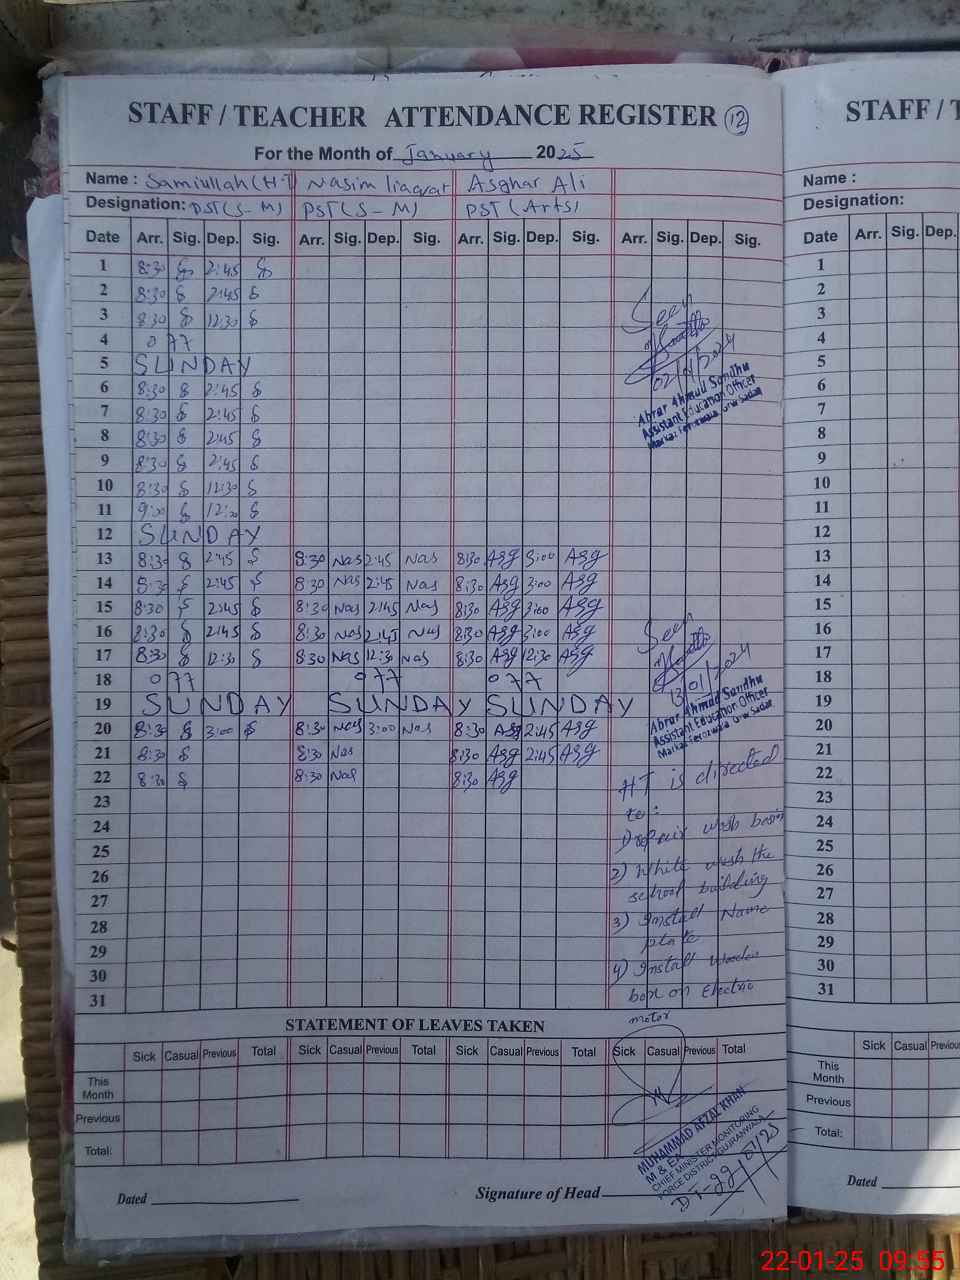 STAFF / TEACHER ATTENDANCE REGISTER 12
For the Month of January 2025
Name : Samiullah (HT) Nasim liaqvat Asghar Ali
Designation: PST(S-M) PST(S-M) PST (Arts)
Date Arr. Sig. Dep. Sig. Arr. Sig. Dep. Sig. Arr. Sig. Dep. Sig. Arr. Sig. Dep. Sig.
1 8:30 2:45
2 8:30 2:45
3 8:30 12:30
4 077
5 SUNDAY
6 8:30 2:45
7 8:30 2:45
8 8:30 2:45
9 8:30 2:45
10 8:30 12:30
11 9:00 12:00
12 SUNDAY
13 8:30 2:45 8:30 Nas 2:45 Nas 8:30 Asg 3:00 Asg
14 8:30 2:45 8:30 Nas 2:45 Nas 8:30 Asg 3:00 Asg
15 8:30 2:45 8:30 Nas 2:45 Nas 8:30 Asg 3:00 Asg
16 8:30 2:45 8:30 Nas 2:45 Nas 8:30 Asg 3:00 Asg
17 8:30 12:30 8:30 Nas 12:30 Nas 8:30 Asg 12:30 Asg
18 077 077 077
19 SUNDAY SUNDAY SUNDAY
20 8:30 3:00 8:30 Nas 3:00 Nas 8:30 Asg 2:45 Asg
21 8:30 8:30 Nas 8:30 Asg 2:45 Asg
22 8:30 8:30 Nas 8:30 Asg
23
24
25
26
27
28
29
30
31
Seen
Abrar Ahmad Sandhu
Assistant Education Officer
Seen
13/01/2024
Abrar Ahmad Sandhu
Assistant Education Officer
HT is directed
to :
1) repair wash basin
2) White wash the
school building
3) Install Name
plate
4) Install wooden
box on Electric
motor
STATEMENT OF LEAVES TAKEN
Sick Casual Previous Total Sick Casual Previous Total Sick Casual Previous Total Sick Casual Previous Total
This Month
Previous
Total:
MUHAMMAD AFZAL KHAN
M & EA
CHIEF MINISTER MONITORING
FORCE DISTRICT GUJRANWALA
Dated
Signature of Head
STAFF / T
Name :
Designation:
Date Arr. Sig. Dep.
1
2
3
4
5
6
7
8
9
10
11
12
13
14
15
16
17
18
19
20
21
22
23
24
25
26
27
28
29
30
31
Sick Casual Previous
This Month
Previous
Total:
Dated
22-01-25 09:55